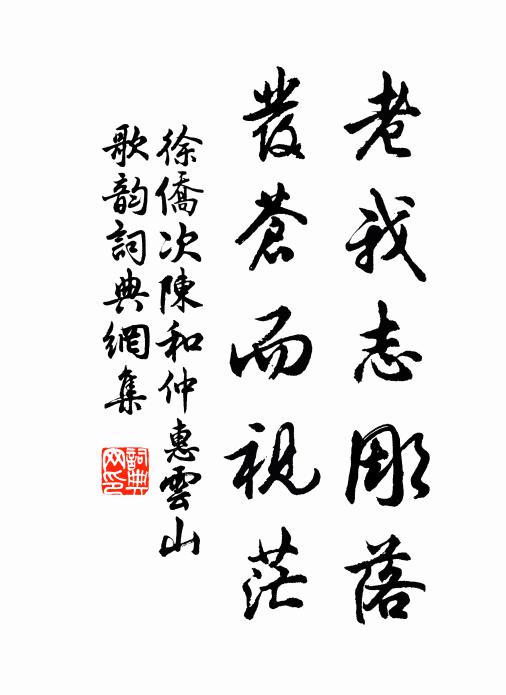 老我志彫落
發蒼而視茫
徐僑次陳和仲惠雲山
歌韵詞典網集
詞典網印